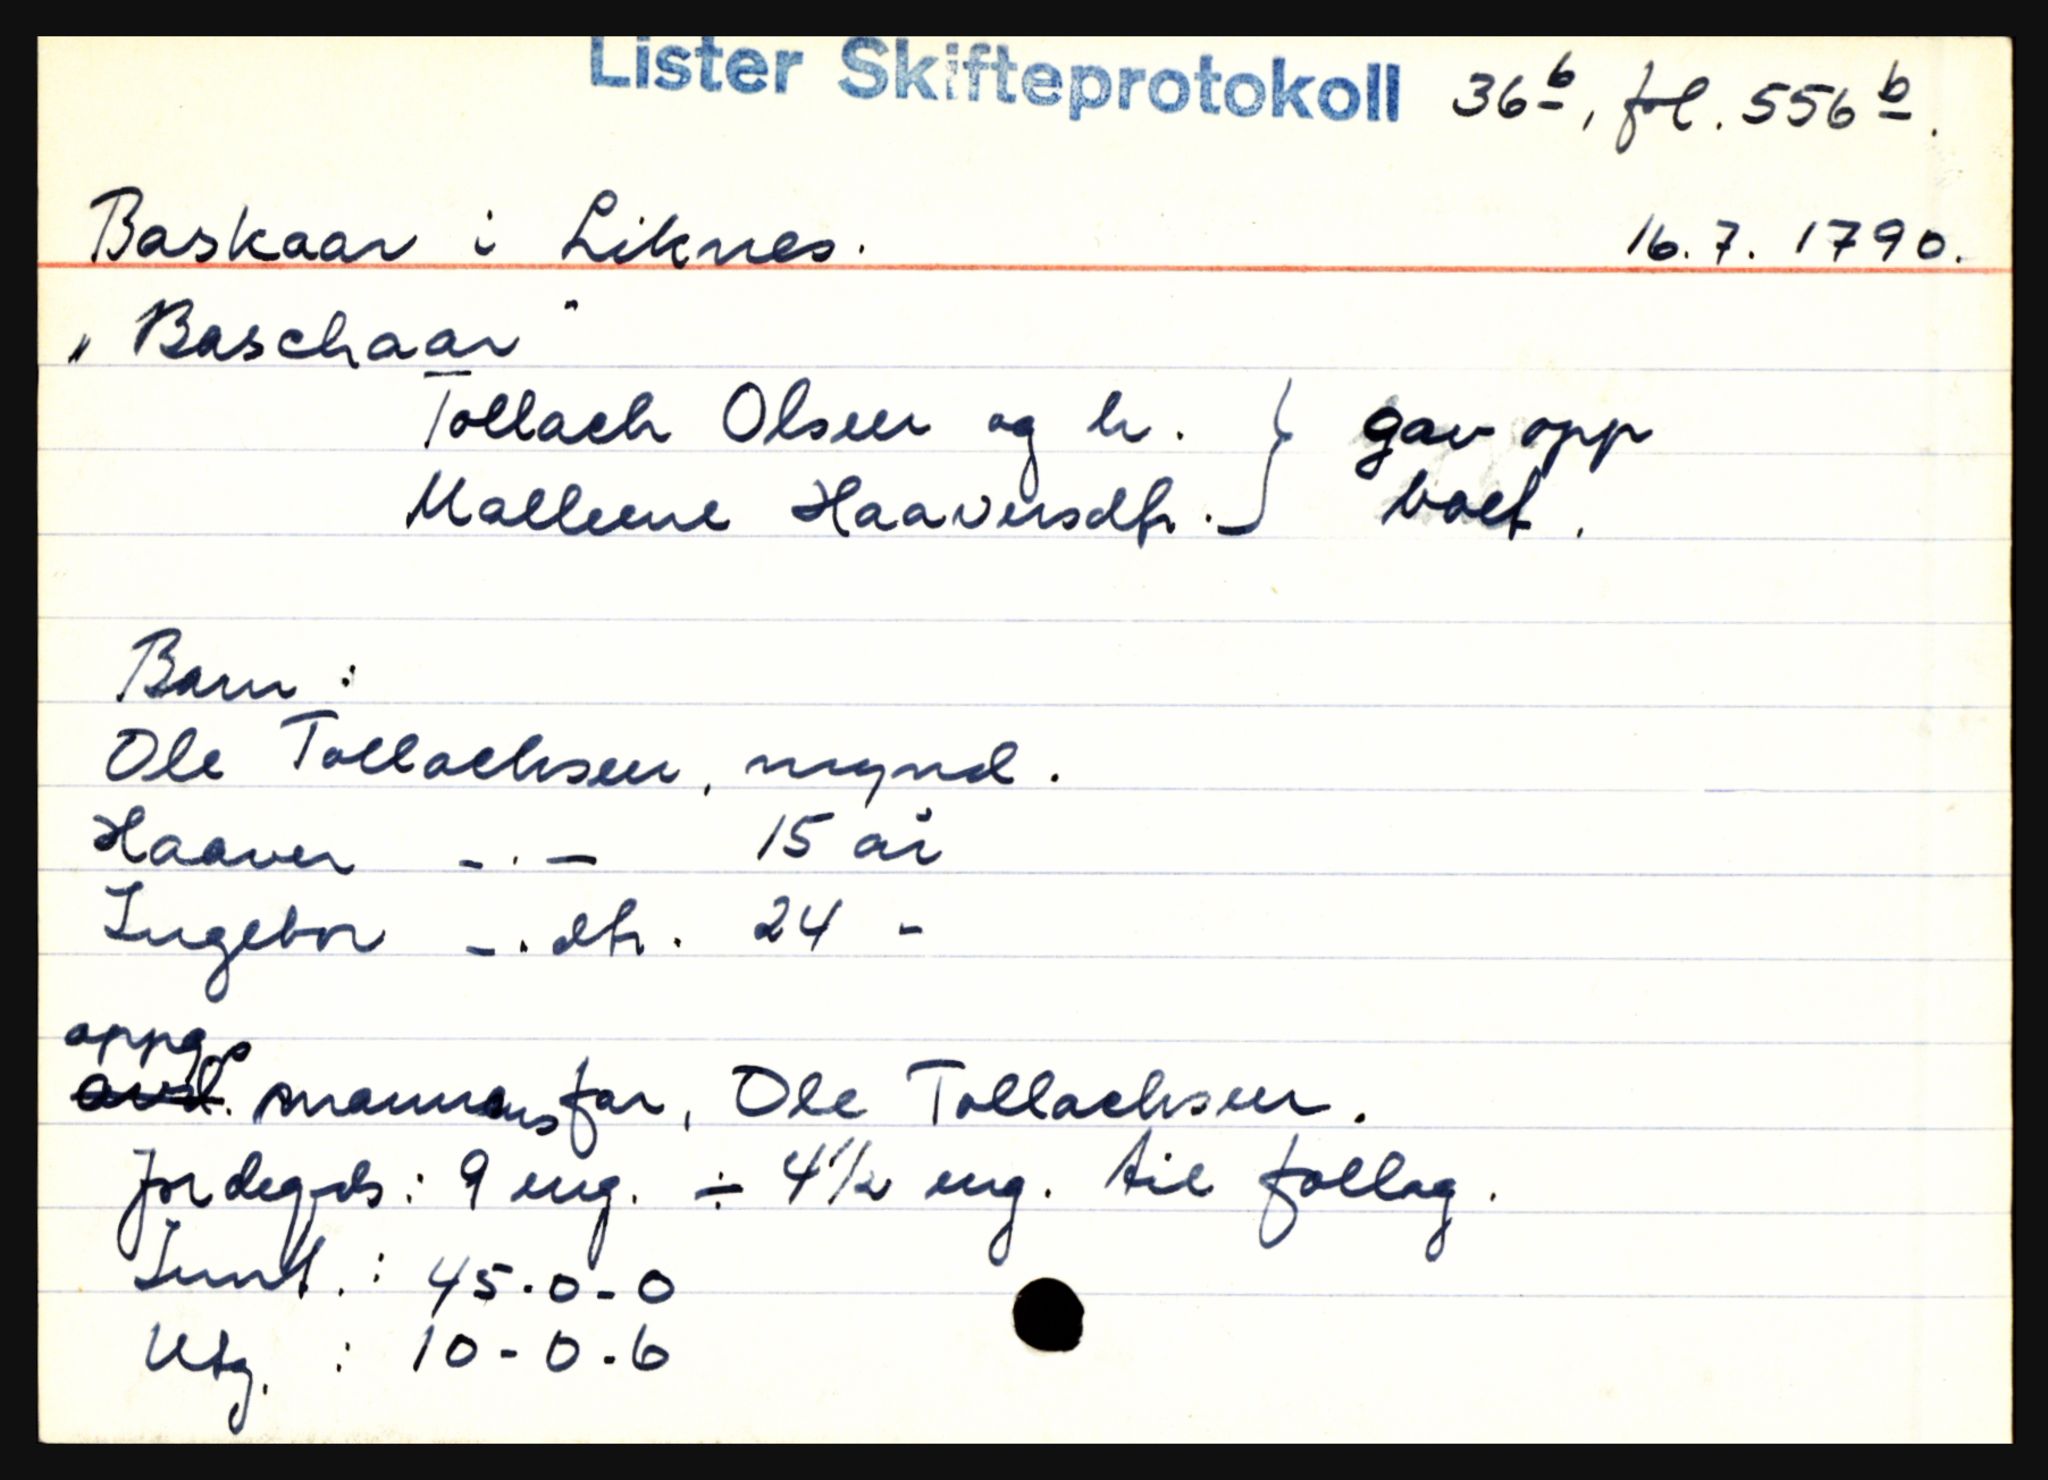 Lister Skifteprotokoll 36b, fol. 556b.
Baskaar i Liknes. 16.7.1790.
„Baschaar"
Tollach Olsen og h. } gav opp
Malleene Haaversdtr. } boet.
Barn:
Ole Tollachsen, mynd.
Haaver -.- 15 år
Ingebor -.dtr. 24 -
oppg.
mannens far, Ole Tollachsen.
Jordegods: 9 eng. ÷ 4 1/2 eng. til follog.
Innt.: 45-0-0
Utg. : 10-0-6